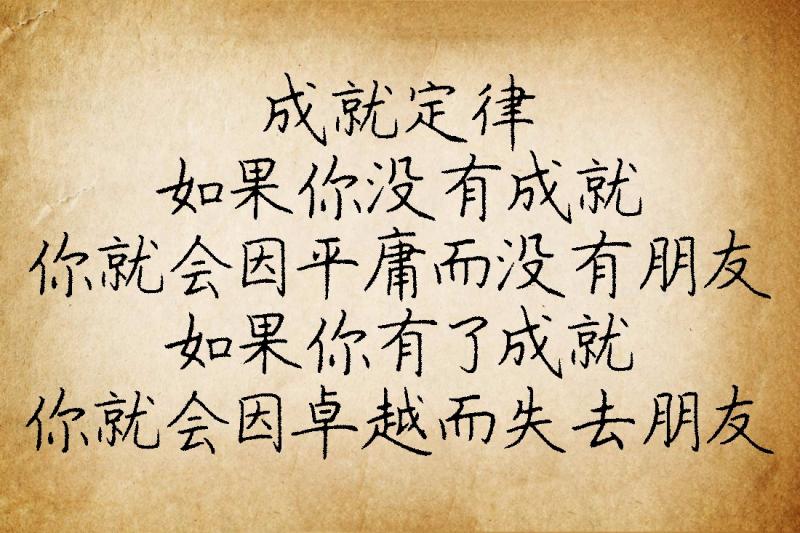 成就定律
如果你没有成就
你就会因平庸而没有朋友
如果你有了成就
你就会因卓越而失去朋友